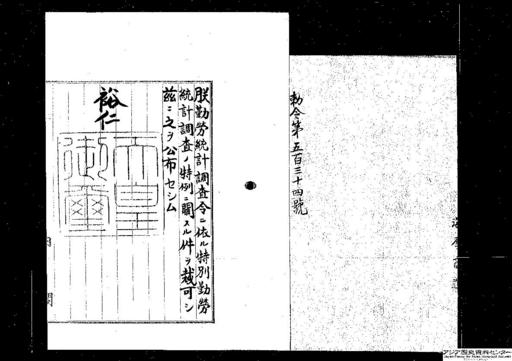 勅令第五百三十四號
朕勤勞統計調査令ニ依ル特別勤勞
統計調査ノ特例ニ關スル件ヲ裁可シ
茲ニ之ヲ公布セシム
裕仁
天皇
御璽
内閣
アジア歴史資料センター